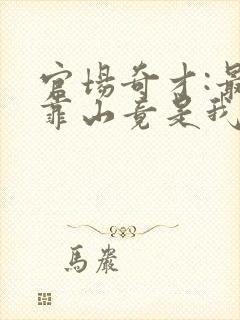 官場奇才:最
靠山竟是我
馬巖